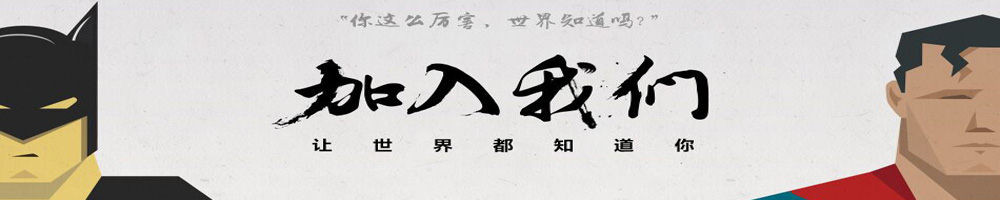 “你这么厉害，世界知道吗？”
加入我们
让世界都知道你